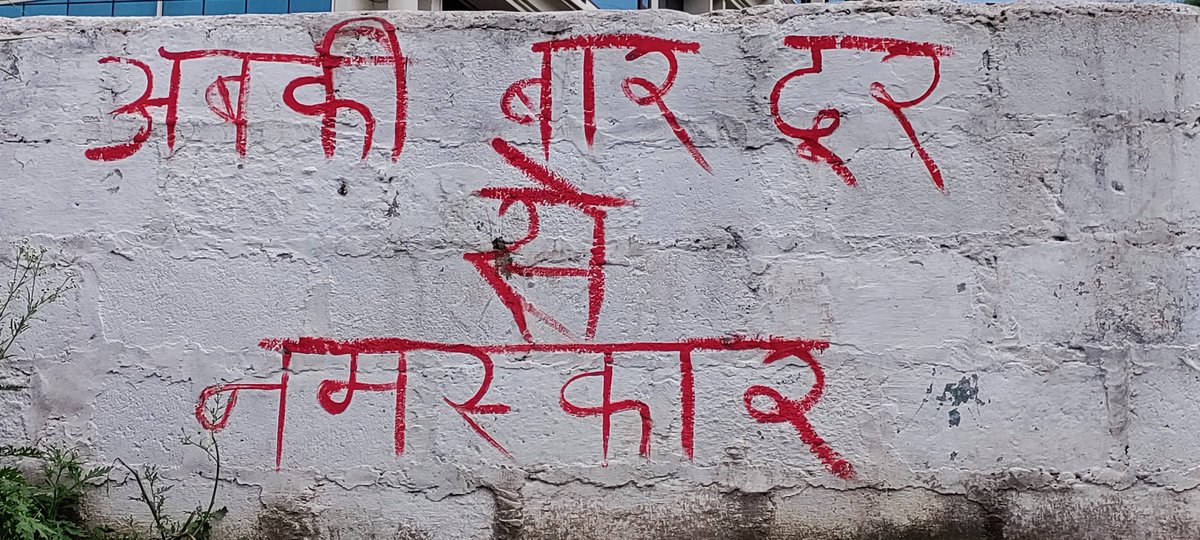 अबकी बार दूर
से
नमस्कार